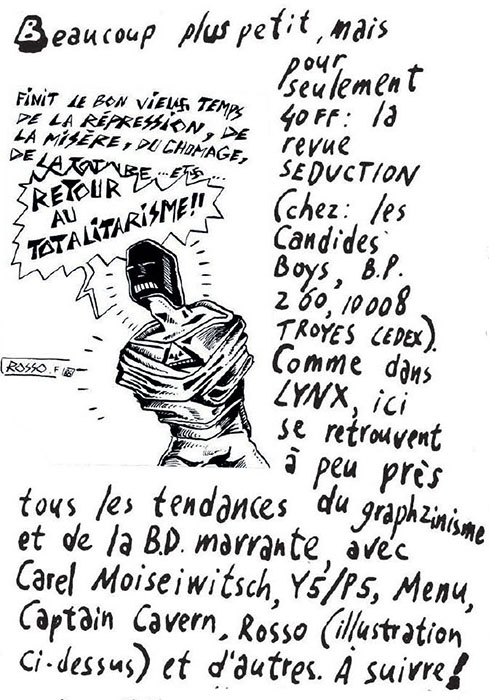 Beaucoup plus petit, mais
pour
seulement
40FF: la
revue
SEDUCTION
(chez: les
Candides
Boys, B.P.
260, 10008
TROYES CEDEX).
Comme dans
LYNX, ici
se retrouvent
à peu près
tous les tendances du graphzinisme
et de la B.D. marrante, avec
Carel Moiseiwitsch, Y5/P5, Menu,
Captain Cavern, Rosso (illustration
ci-dessus) et d'autres. A suivre!
FINIT LE BON VIEUX TEMPS
DE LA RÉPRESSION, DE
LA MISÈRE, DU CHOMAGE,
DE LA
RETOUR
AU
TOTALITARISME!!
ROSSO.F